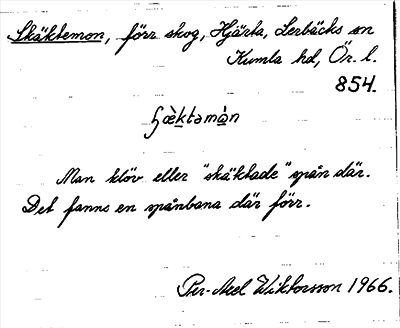 Skäktemon, förr skog, Hjärta, Lerbäcks sn
Kumla hd, Ör. l.
854.
ʃɧæ̀ktəmὰn
Man klöv eller "skäktade" spån där.
Det fanns en spånbana där förr.
Per-Axel Wiktorsson 1966.